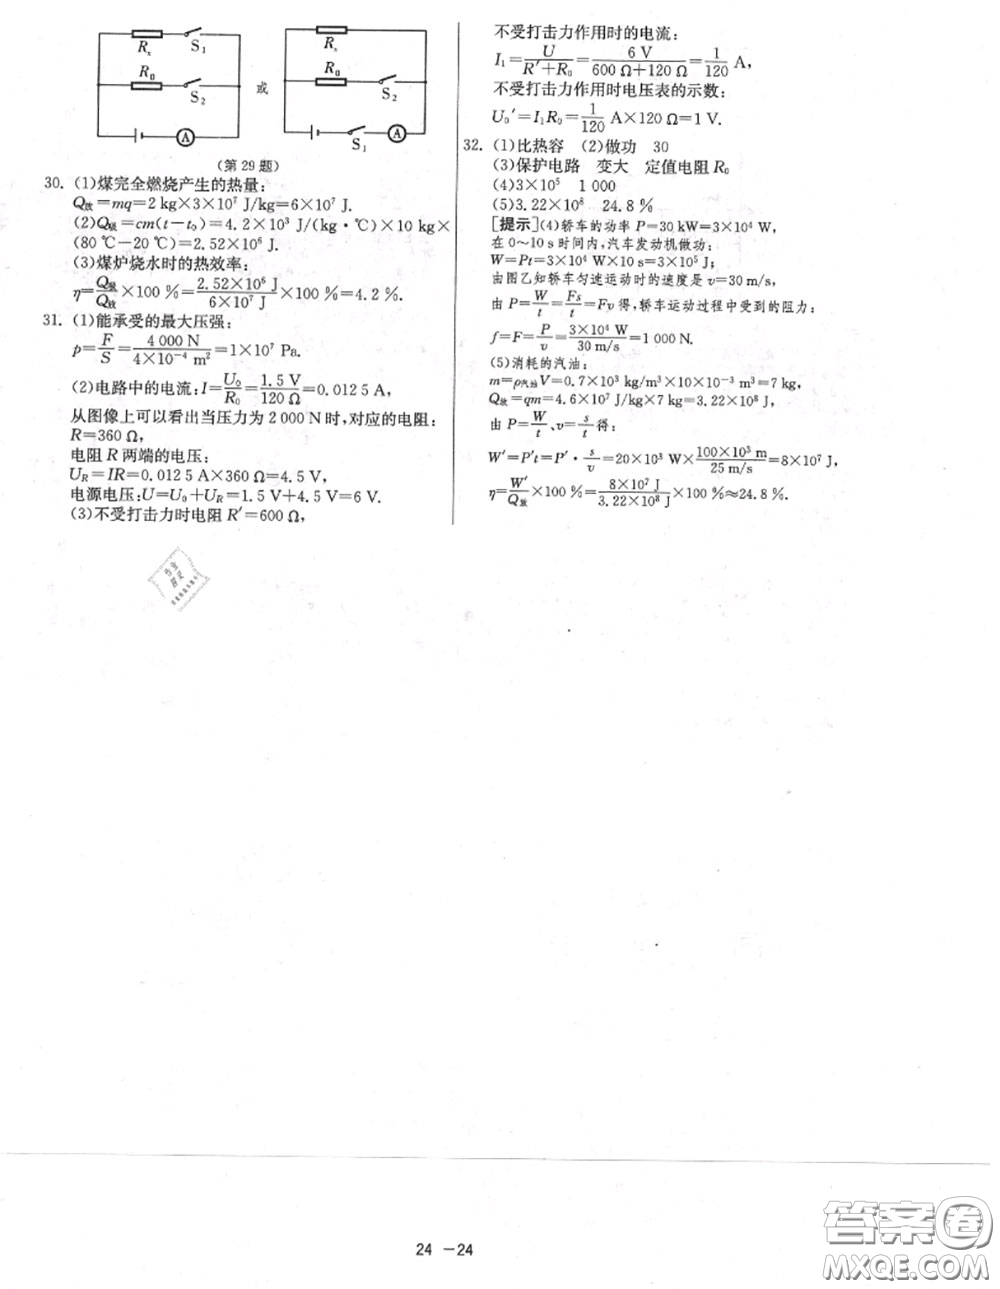 Rₓ S₁
R₀ S₂
A
或
Rₓ
R₀ S₂
S₁ A
(第 29 题)
30. (1)煤完全燃烧产生的热量：
Q放=mq=2 kg×3×10⁷ J/kg=6×10⁷ J.
(2)Q吸=cm(t－t₀)=4.2×10³ J/(kg·℃)×10 kg×
(80 ℃－20 ℃)=2.52×10⁶ J.
(3)煤炉烧水时的热效率：
η=Q吸/Q放×100 %=2.52×10⁶ J/6×10⁷ J×100 %=4.2 %.
31. (1)能承受的最大压强：
p=F/S=4 000 N/4×10⁻⁴ m²=1×10⁷ Pa.
(2)电路中的电流：I=U₀/R₀=1.5 V/120 Ω=0.012 5 A，
从图像上可以看出当压力为 2 000 N 时，对应的电阻：
R=360 Ω，
电阻 R 两端的电压：
U_R=IR=0.012 5 A×360 Ω=4.5 V，
电源电压：U=U₀+U_R=1.5 V+4.5 V=6 V.
(3)不受打击力时电阻 R′=600 Ω，
不受打击力作用时的电流：
I₁=U/(R′+R₀)=6 V/(600 Ω+120 Ω)=1/120 A，
不受打击力作用时电压表的示数：
U₀′=I₁R₀=1/120 A×120 Ω=1 V.
32. (1)比热容 (2)做功 30
(3)保护电路 变大 定值电阻 R₀
(4)3×10⁵ 1 000
(5)3.22×10⁸ 24.8 %
[提示](4)轿车的功率 P=30 kW=3×10⁴ W，
在 0～10 s 时间内，汽车发动机做功：
W=Pt=3×10⁴ W×10 s=3×10⁵ J；
由图乙知轿车匀速运动时的速度是 v=30 m/s，
由 P=W/t=Fs/t=Fv 得，轿车运动过程中受到的阻力：
f=F=P/v=3×10⁴ W/30 m/s=1 000 N.
(5)消耗的汽油：
m=ρ汽油V=0.7×10³ kg/m³×10×10⁻³ m³=7 kg，
Q放=qm=4.6×10⁷ J/kg×7 kg=3.22×10⁸ J，
由 P=W/t、v=s/t 得：
W′=P′t=P′·s/v=20×10³ W×100×10³ m/25 m/s=8×10⁷ J，
η=W′/Q放×100 %=8×10⁷ J/3.22×10⁸ J×100 %≈24.8 %.
作业
精灵
24 －24
答案卷
MXQE.COM